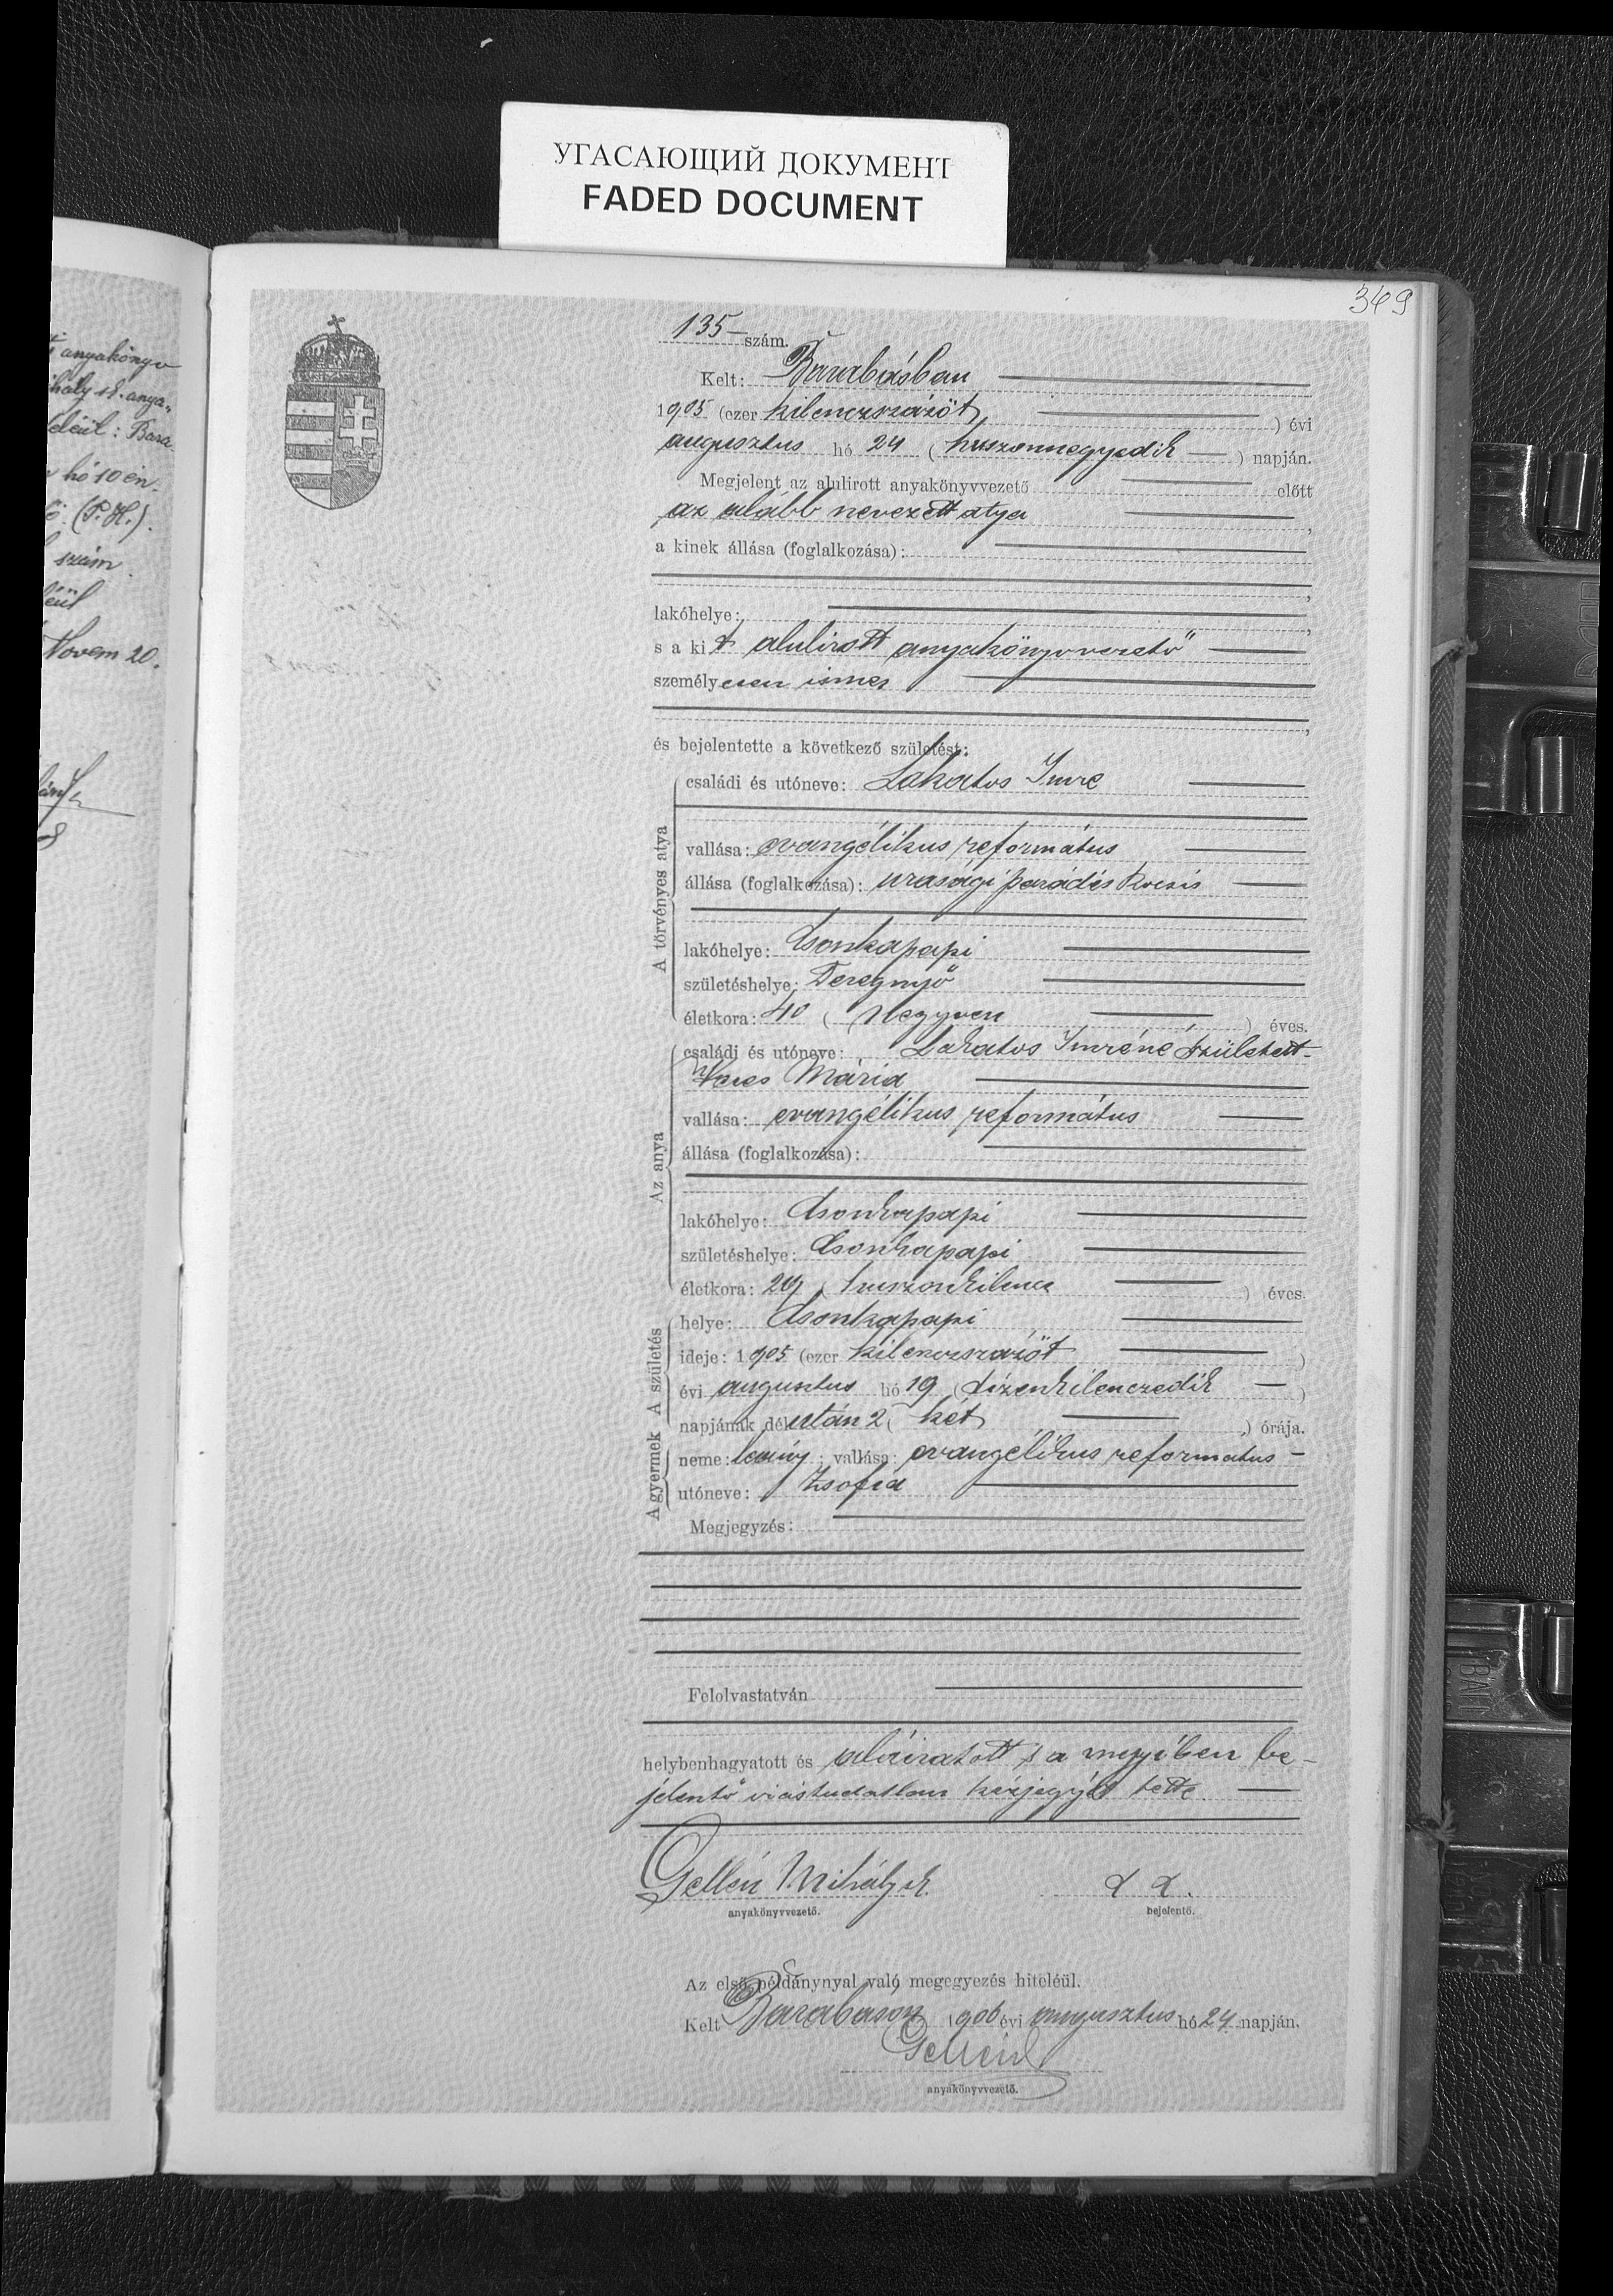 УГАСАЮЩИЙ ДОКУМЕНТ
FADED DOCUMENT
369
anyakönyv
hály s. k. anya-
eléül: Bara
hó 10 én.
(P. H.).
szám
éül
Novem 20.
135 szám.
Kelt: Barabásban
1905 (ezer kilenczszázöt) évi
augusztus hó 24 (huszonnegyedik) napján.
Megjelent az alulirott anyakönyvvezető előtt
az alább nevezett atya,
a kinek állása (foglalkozása):
,
lakóhelye: ,
s a kit alulirott anyakönyvvezető
személyesen ismer
,
és bejelentette a következő születést:
A törvényes atya
családi és utóneve: Lakatos Imre
vallása: evangélikus református
állása (foglalkozása): urasági parádés kocsis
lakóhelye: Csonkapapi
születéshelye: Deregnyő
életkora: 40 (Negyven) éves.
Az anya
családi és utóneve: Lakatos Imréné született
Mária
vallása: evangélikus református
állása (foglalkozása):
lakóhelye: Csonkapapi
születéshelye: Csonkapapi
életkora: 29 (huszonkilencz) éves.
A születés
helye: Csonkapapi
ideje: 1905 (ezer kilenczszázöt)
évi augusztus hó 19 (tizenkilenczedik)
napjának délután 2 (két) órája.
A gyermek
neme: leány; vallása: evangélikus reformatus
utóneve: Zsofia
Megjegyzés:
Felolvastatván
helybenhagyatott és aláiratott s a mennyiben be-
jelentő irástudatlan kézjegyét tette
Gellén Mihály sk.
anyakönyvvezető.
bejelentő.
Az első példánynyal való megegyezés hiteléül.
Kelt Barabáson 1906 évi augusztus hó 24 napján.
Gellén
anyakönyvvezető.